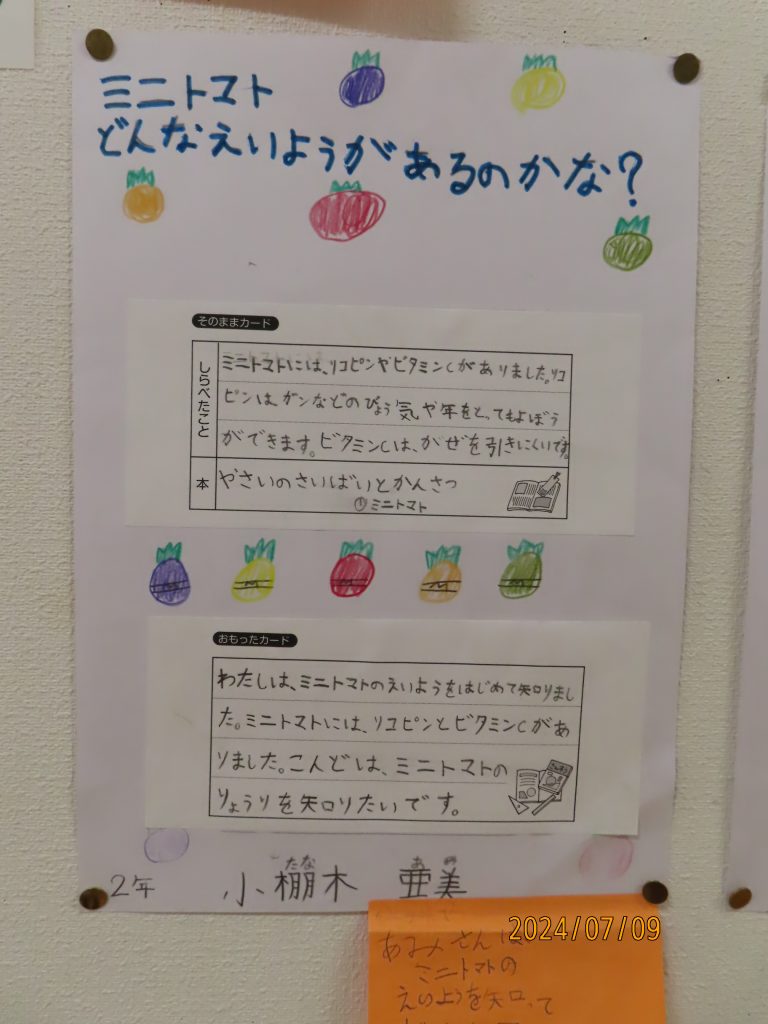 ミニトマト
どんなえいようがあるのかな？
そのままカード
しらべたこと
ミニトマトには、リコピンやビタミンCがありました。リコ
ピンは、ガンなどのびょう気や年をとってもよぼう
ができます。ビタミンCは、かぜを引きにくいです。
本
やさいのさいばいとかんさつ
①ミニトマト
おもったカード
わたしは、ミニトマトのえいようをはじめて知りまし
た。ミニトマトには、リコピンとビタミンCがあ
りました。こんどは、ミニトマトの
りょうりを知りたいです。
たな あ み
2年 小棚木 亜美
2024/07/09
あみさんは
ミニトマトの
えいようを知って